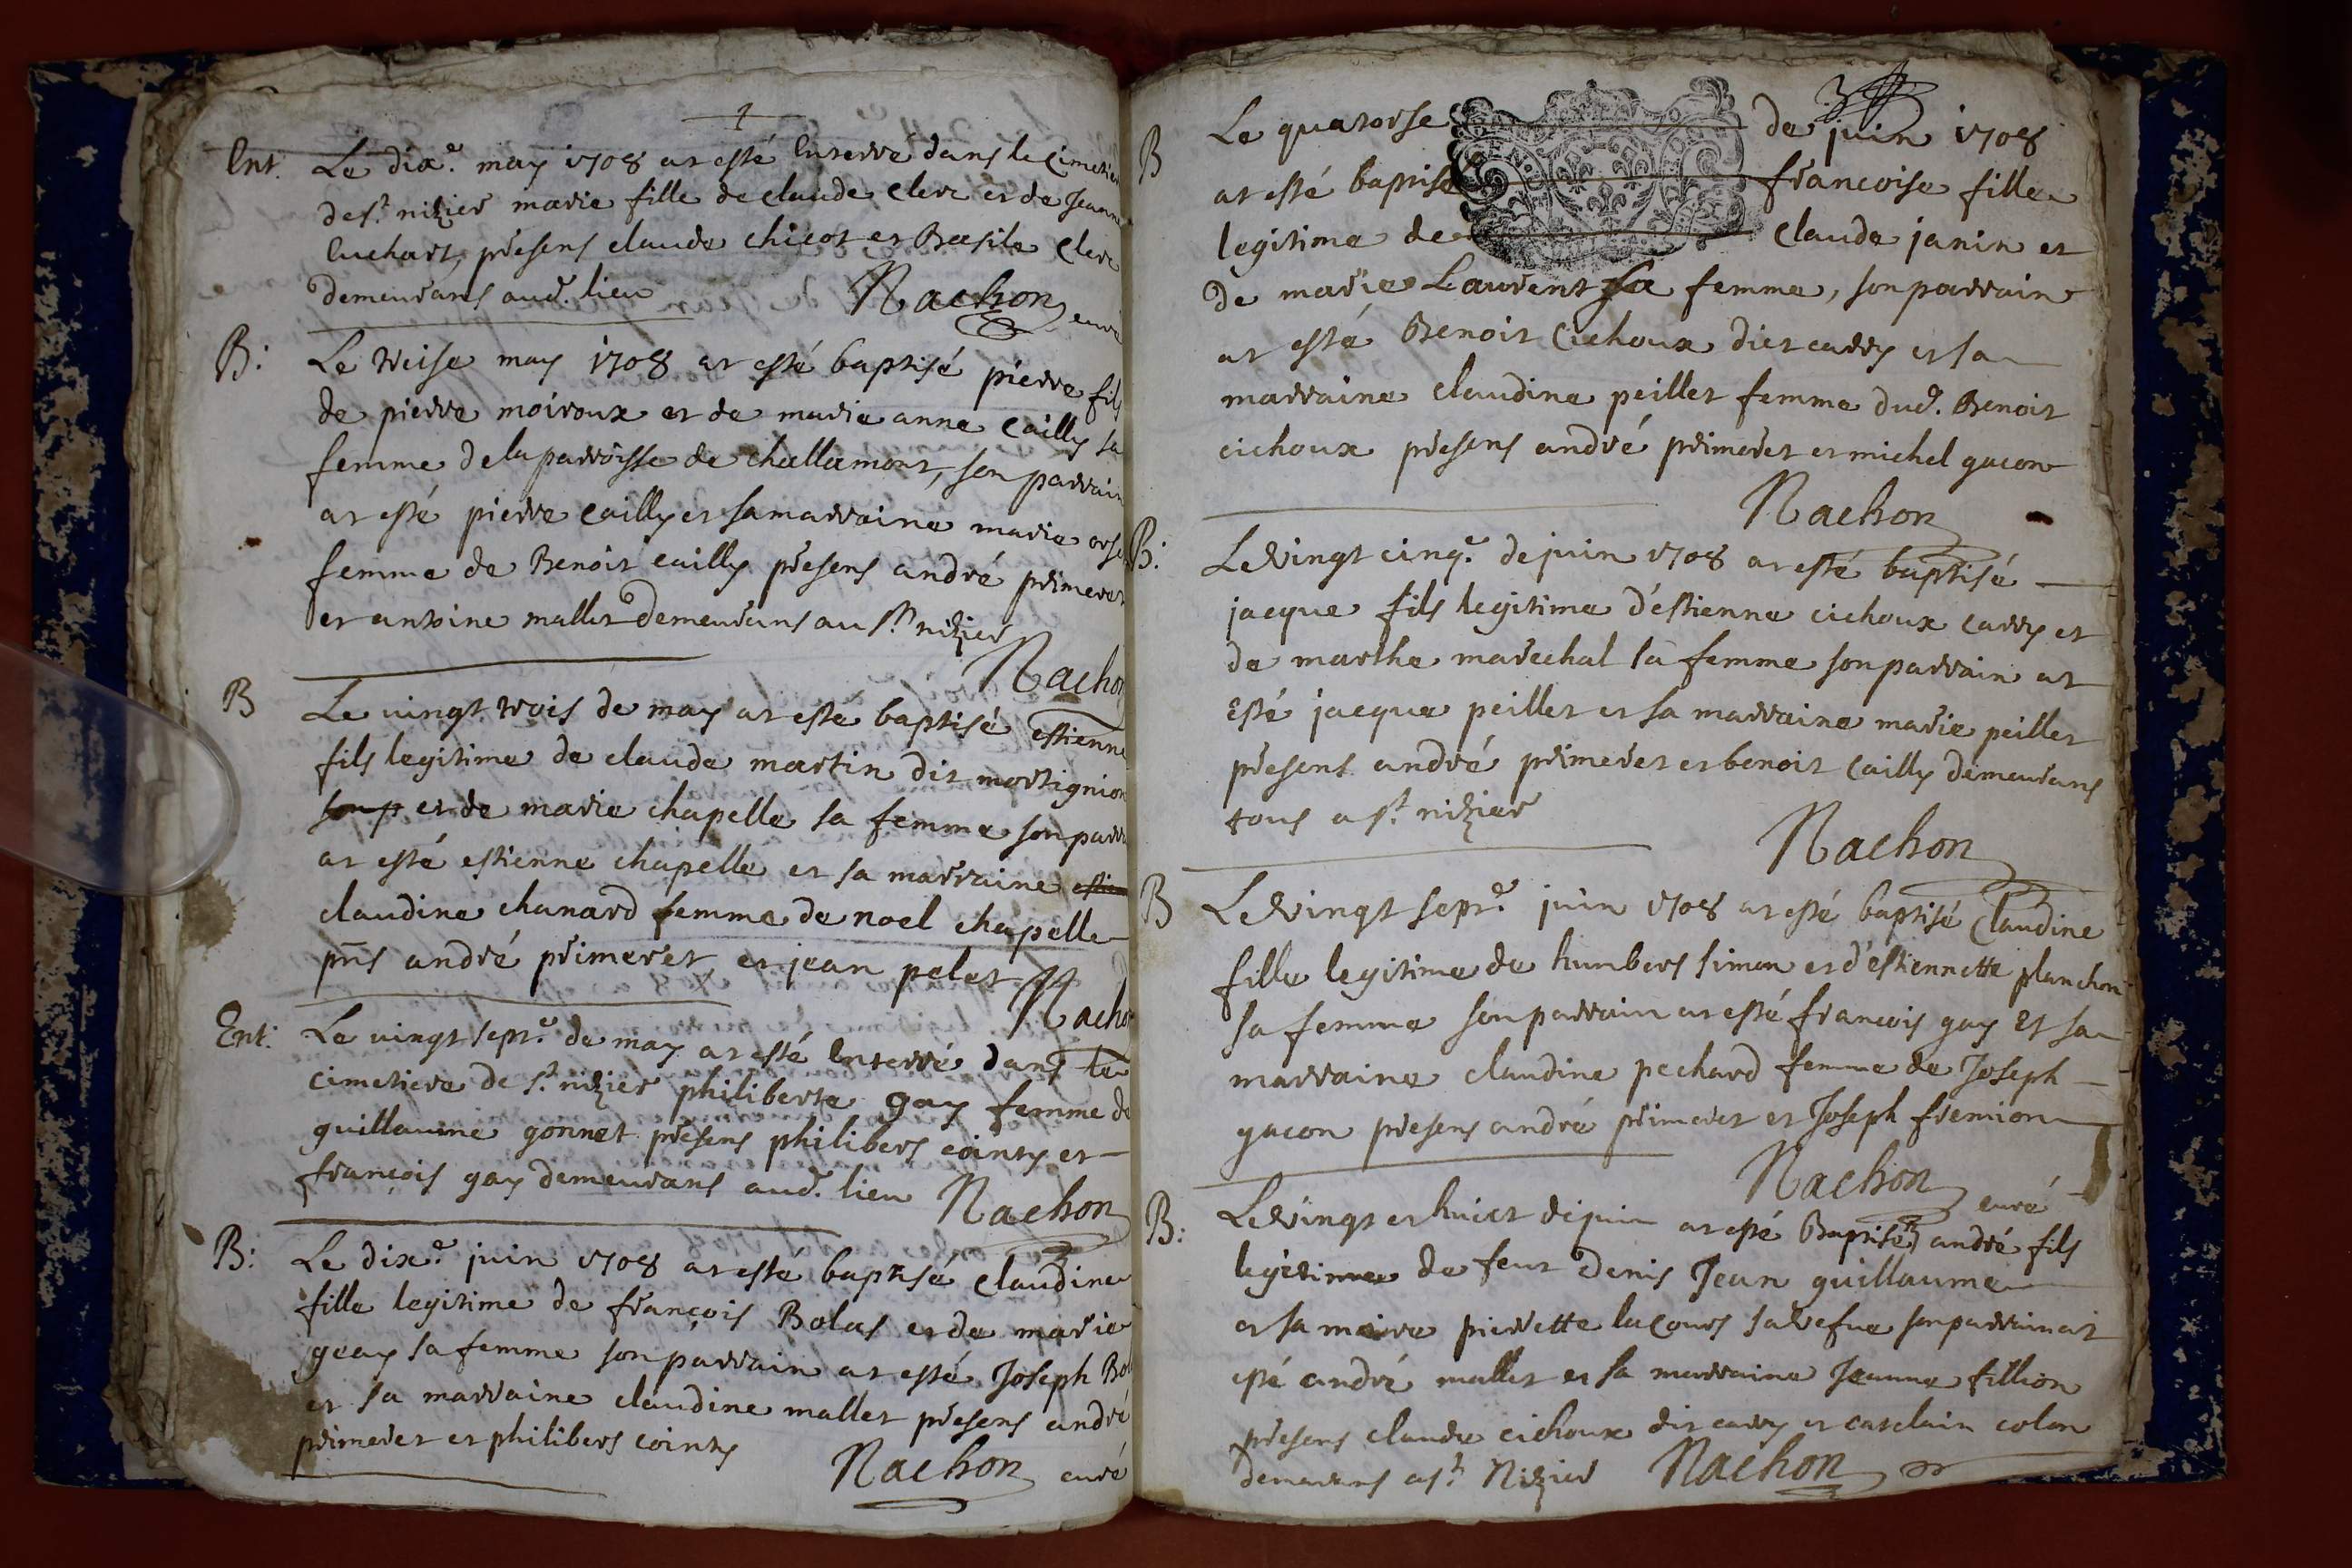 1
Ent. Le dix.e may 1708 at esté Enterré dans le Cimetier
de st. nizier marie fille de claude clerc et de Jeanne
Cuchart, presens claude chicot et Basile Clerc
demeurans aud. lieu Nachon curé
B: Le treise may 1708 at esté baptisé pierre fils
de pierre moiroux et de marie anne Cailly sa
femme de la parroisse de challamont, son parrain
at esté pierre cailly et sa marraine marie
femme de Benoit cailly presens andré primeret
et antoine mallet demeurans au st. nizier
Nachon
B Le vingt trois de may at esté baptisé estienne
fils legitime de claude martin dit mortignion
et de marie chapelle sa femme son parr
at esté estienne chapelle et sa marraine
claudine chanard femme de noel chapelle
pns andré primeret et jean pelet
Nachon
Ent: Le vingt sept.e de may at esté Enterré dans le
cimetiere de st. nizier philiberte gay femme de
guillaume gonnet presens philibert cointy et
françois gay demeurans aud. lieu Nachon
B: Le dix.e juin 1708 at esté baptisé claudine
fille legitime de françois Bolas et de marie
geay sa femme son parrain at esté Joseph Bol
et sa marraine claudine mallet presens andré
primeret et philibert cointy
Nachon curé
3
B Le quatorse de juin 1708
at esté baptisé francoise fille
legitime de claude janin et
de marie Laurent sa femme, son parrain
at esté Benoit Cichoux dict carry et sa
marraine claudine peillet femme dud. Benoit
cichoux presens andré primeret et michel gacon
Nachon
B: Le vingt cinq.e de juin 1708 at esté baptisé
jacque fils legitime d'estienne cichoux carry et
de marthe marechal sa femme son parrain at
esté jacque peillet et sa marraine marie peillet
presens andré primeret et benoit Cailly demeurans
tous a st. nizier
Nachon
B Le vingt sept.e juin 1708 at esté baptisé Claudine
fille legitime de humbert simon et d'estiennette planchon
sa femme son parrain at esté francois gay Et sa
marraine claudine pechard femme de Joseph
gacon presens andré primeret et Joseph fremion
Nachon curé
B: Le vingt et huict de juin at esté Baptisé andré fils
legitime de feut Denis Jean guillaume
et sa maire pierrette la Cours sa vefue son parrain at
esté andré mallet et sa marraine Jeanne fillion
presens claude cichoux dit carry et catelain colon
demeurans a st. Nizier Nachon